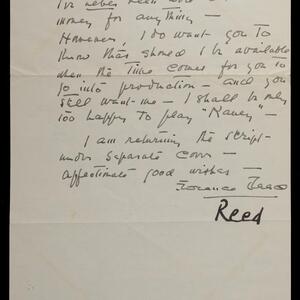 I've never been
money for anything —
However, I do want you to
know that should I be available
when the time comes for you to
go into production — and you
still want me — I shall be only
too happy to play "Raney" —
I am returning the script
under separate cover —
affectionate good wishes —
Florence Reed
Reed